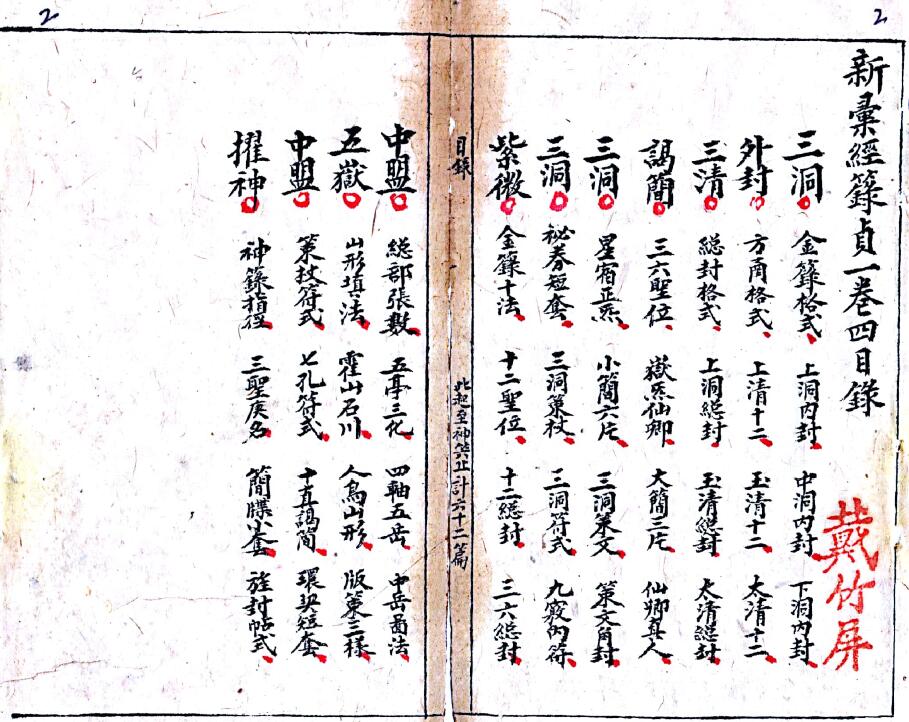 2
2
新彙經籙貞一卷四目錄
戴竹屏
三洞 金籙格式 上洞內封 中洞內封 下洞內封
外封 方角格式 上清十二 玉清十二 太清十二
三清 總封格式 上洞總封 玉清總封 太清總封
謁簡 三六聖位 嶽炁仙卿 大簡三片 仙卿真人
三洞 星宿正炁 小簡六片 三洞策文 策文角封
三洞 祕券短套 三洞策杖 三洞符式 九竅內符
紫微 金籙十法 十二聖位 十二總封 三六總封
目錄
此起至神筴止計六十二篇
中盟 總部張數 五亭三化 四軸五岳 中岳畫法
五嶽 山形填法 霍山石川 人鳥山形 版策三樣
中盟 策杖符式 七孔符式 十真謁簡 環契短套
擢神 神籙指徑 三聖庚名 簡牒小套 旌封帖式